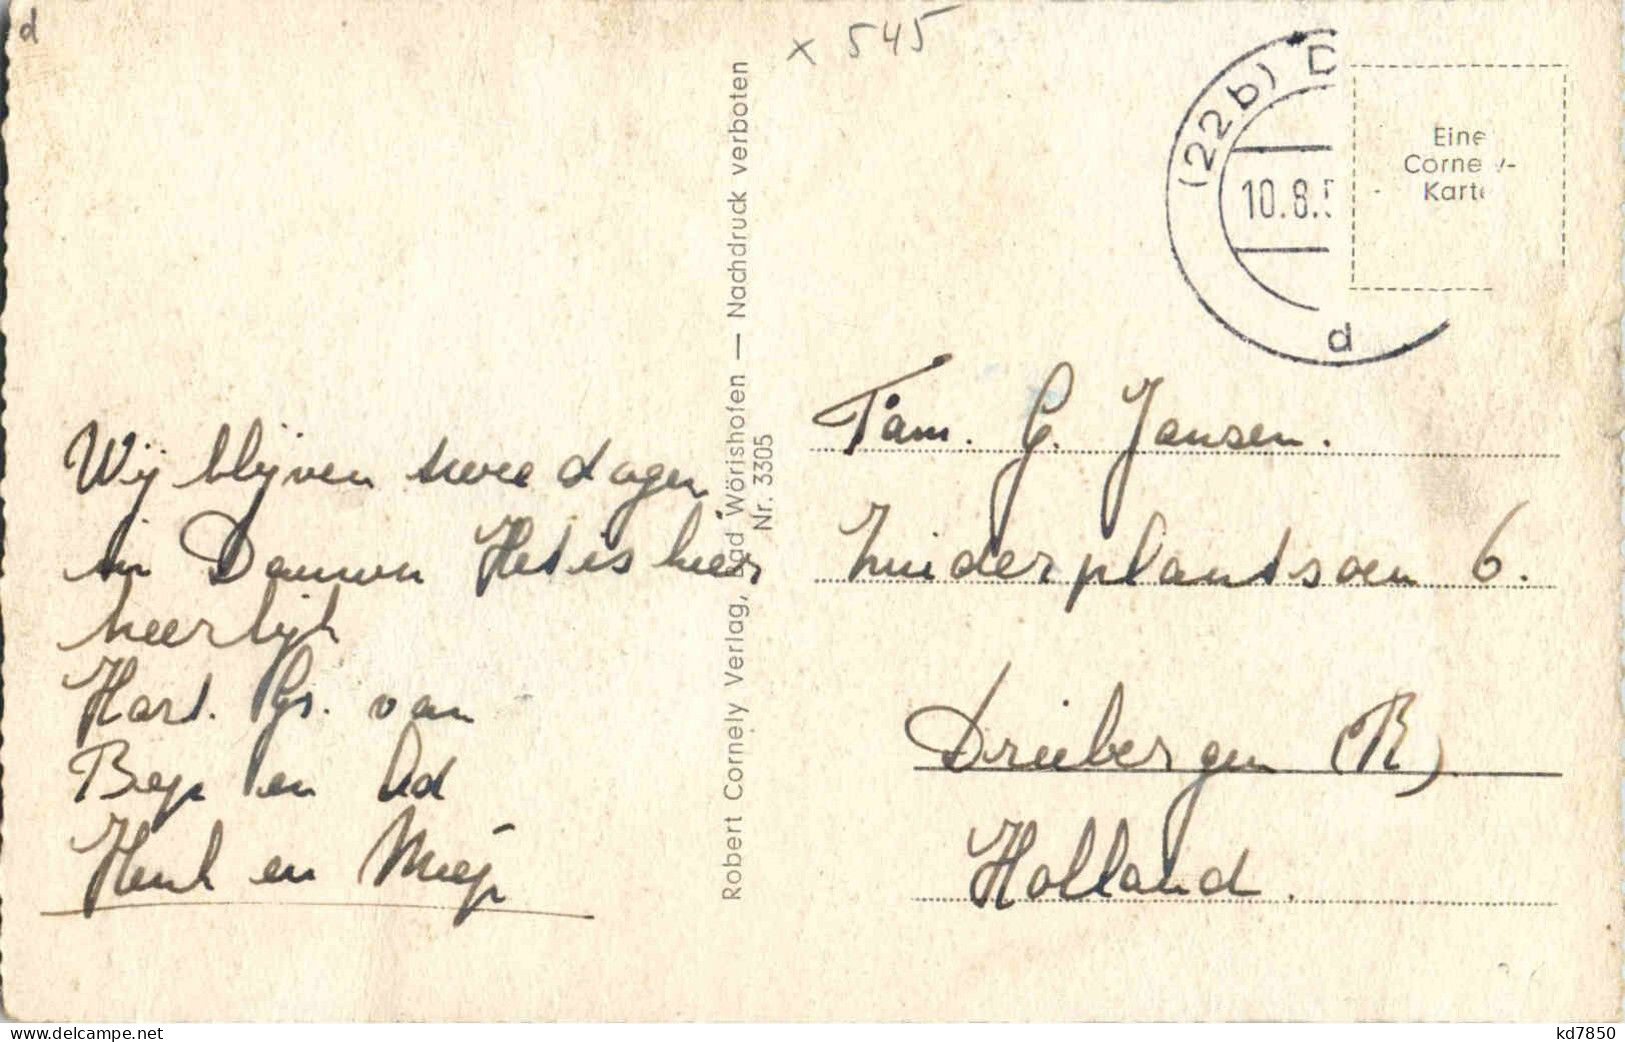 d
x 545
(22b) D
10.8.5
d
Eine
Cornely-
Karte
Wij blijven twee dagen
in Dauwn Het is hier
heerlijk
Hart. Gr. van
Bep en Ad
Henk en Miep
Robert Cornely Verlag, Bad Wörishofen — Nachdruck verboten
Nr. 3305
Fam. G. Jansen.
Zuiderplantsoen 6.
Driebergen (R)
Holland.
www.delcampe.net
kd7850